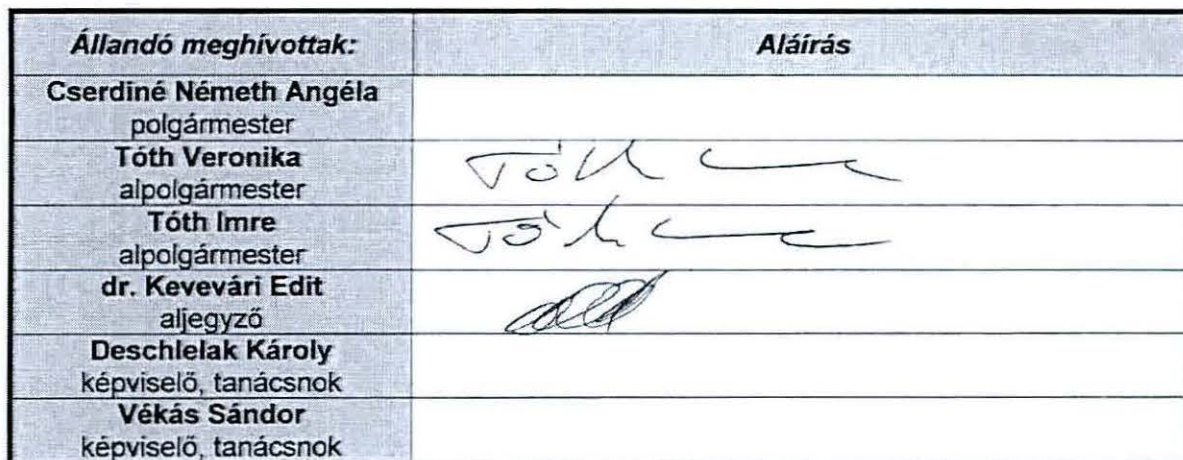 Állandó meghívottak: Aláírás
Cserdiné Németh Angéla
polgármester
Tóth Veronika
alpolgármester
Tóth
Tóth Imre
alpolgármester
Tóth
dr. Kevevári Edit
aljegyző
Deschlelak Károly
képviselő, tanácsnok
Vékás Sándor
képviselő, tanácsnok